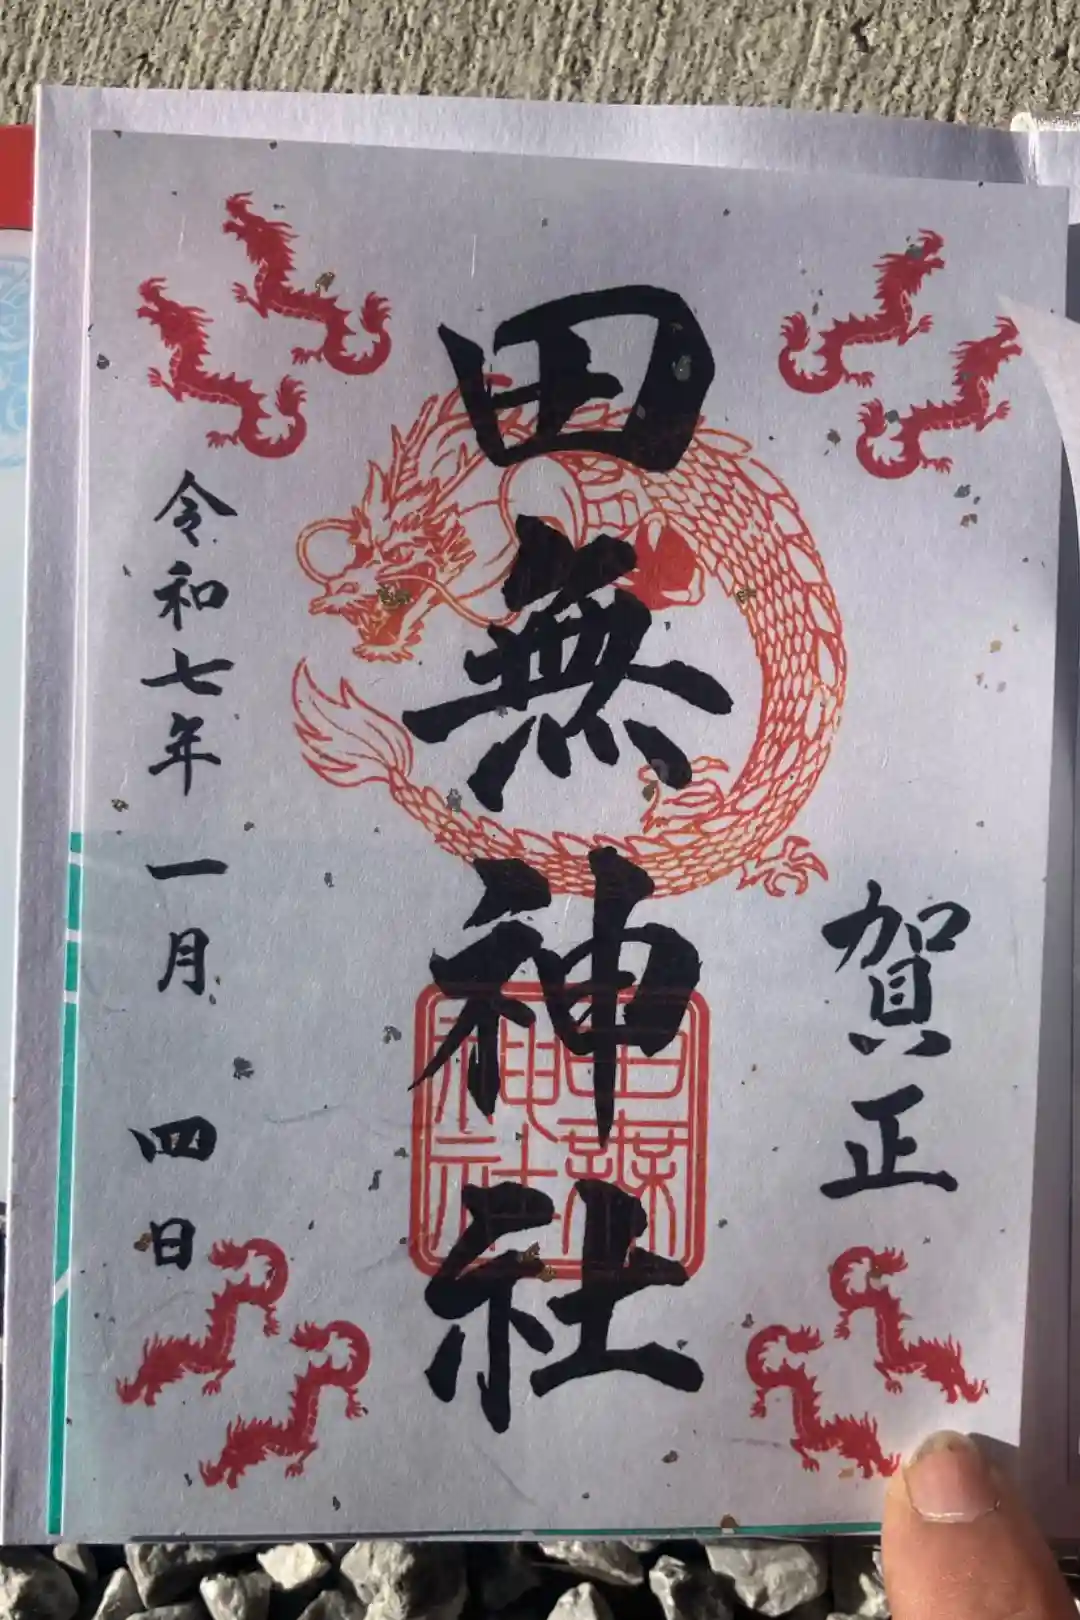 賀正
田無神社
田無神社
令和七年一月四日